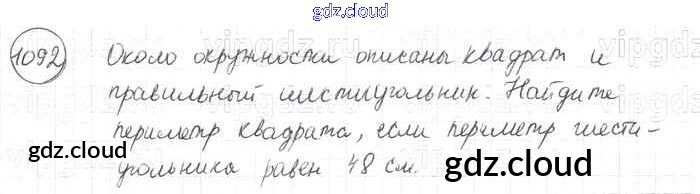 gdz.cloud
1092 Около окружности описаны квадрат и
правильный шестиугольник. Найдите
периметр квадрата, если периметр шести-
угольника равен 48 см.
gdz.cloud
gdz.cloud